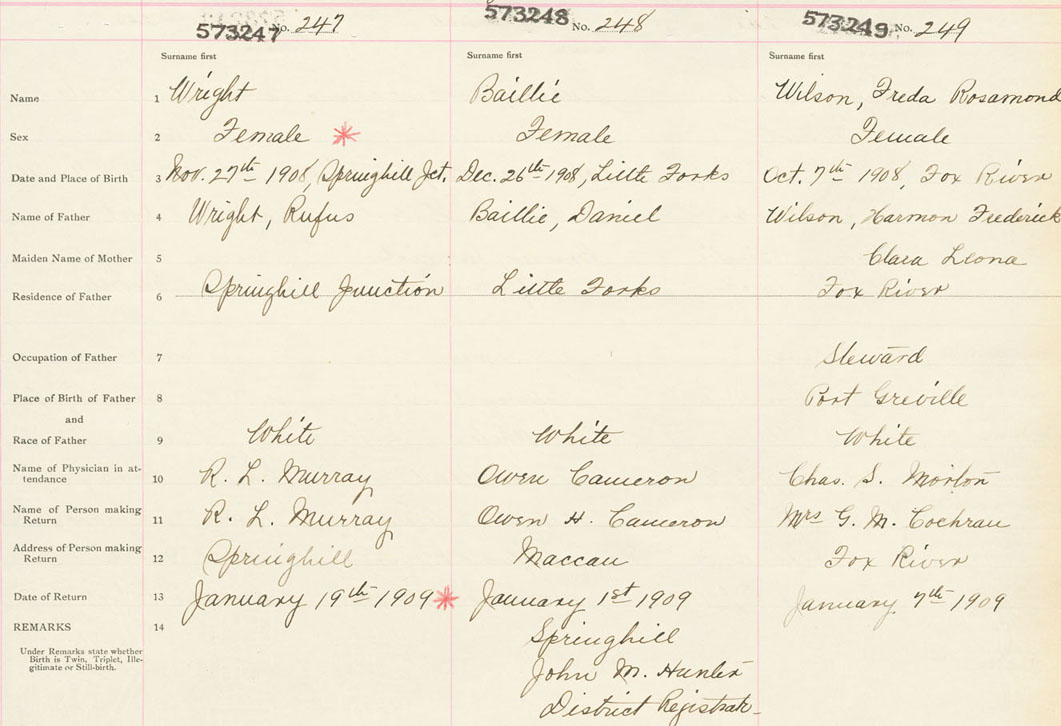 573247 No. 247 573248 No. 248 573249 No. 249
Surname first Surname first Surname first
Name 1 Wright Baillie Wilson, Freda Rosamond
Sex 2 Female * Female Female
Date and Place of Birth 3 Nov. 27th 1908, Springhill Jct. Dec. 26th 1908, Little Forks Oct. 7th 1908, Fox River
Name of Father 4 Wright, Rufus Baillie, Daniel Wilson, Harmon Frederick
Maiden Name of Mother 5 Clara Leona
Residence of Father 6 Springhill Junction Little Forks Fox River
Occupation of Father 7 Steward
Place of Birth of Father 8 Port Greville
and
Race of Father 9 White White White
Name of Physician in at-
tendance 10 R. L. Murray Owen Cameron Chas. S. Morton
Name of Person making
Return 11 R. L. Murray Owen H. Cameron Mrs G. M. Cochran
Address of Person making
Return 12 Springhill Maccan Fox River
Date of Return 13 January 19th 1909 * January 1st 1909 January 7th 1909
REMARKS 14 Springhill
Under Remarks state whether
Birth is Twin, Triplet, Ille-
gitimate or Still-birth.
John M. Hunter
District Registrar